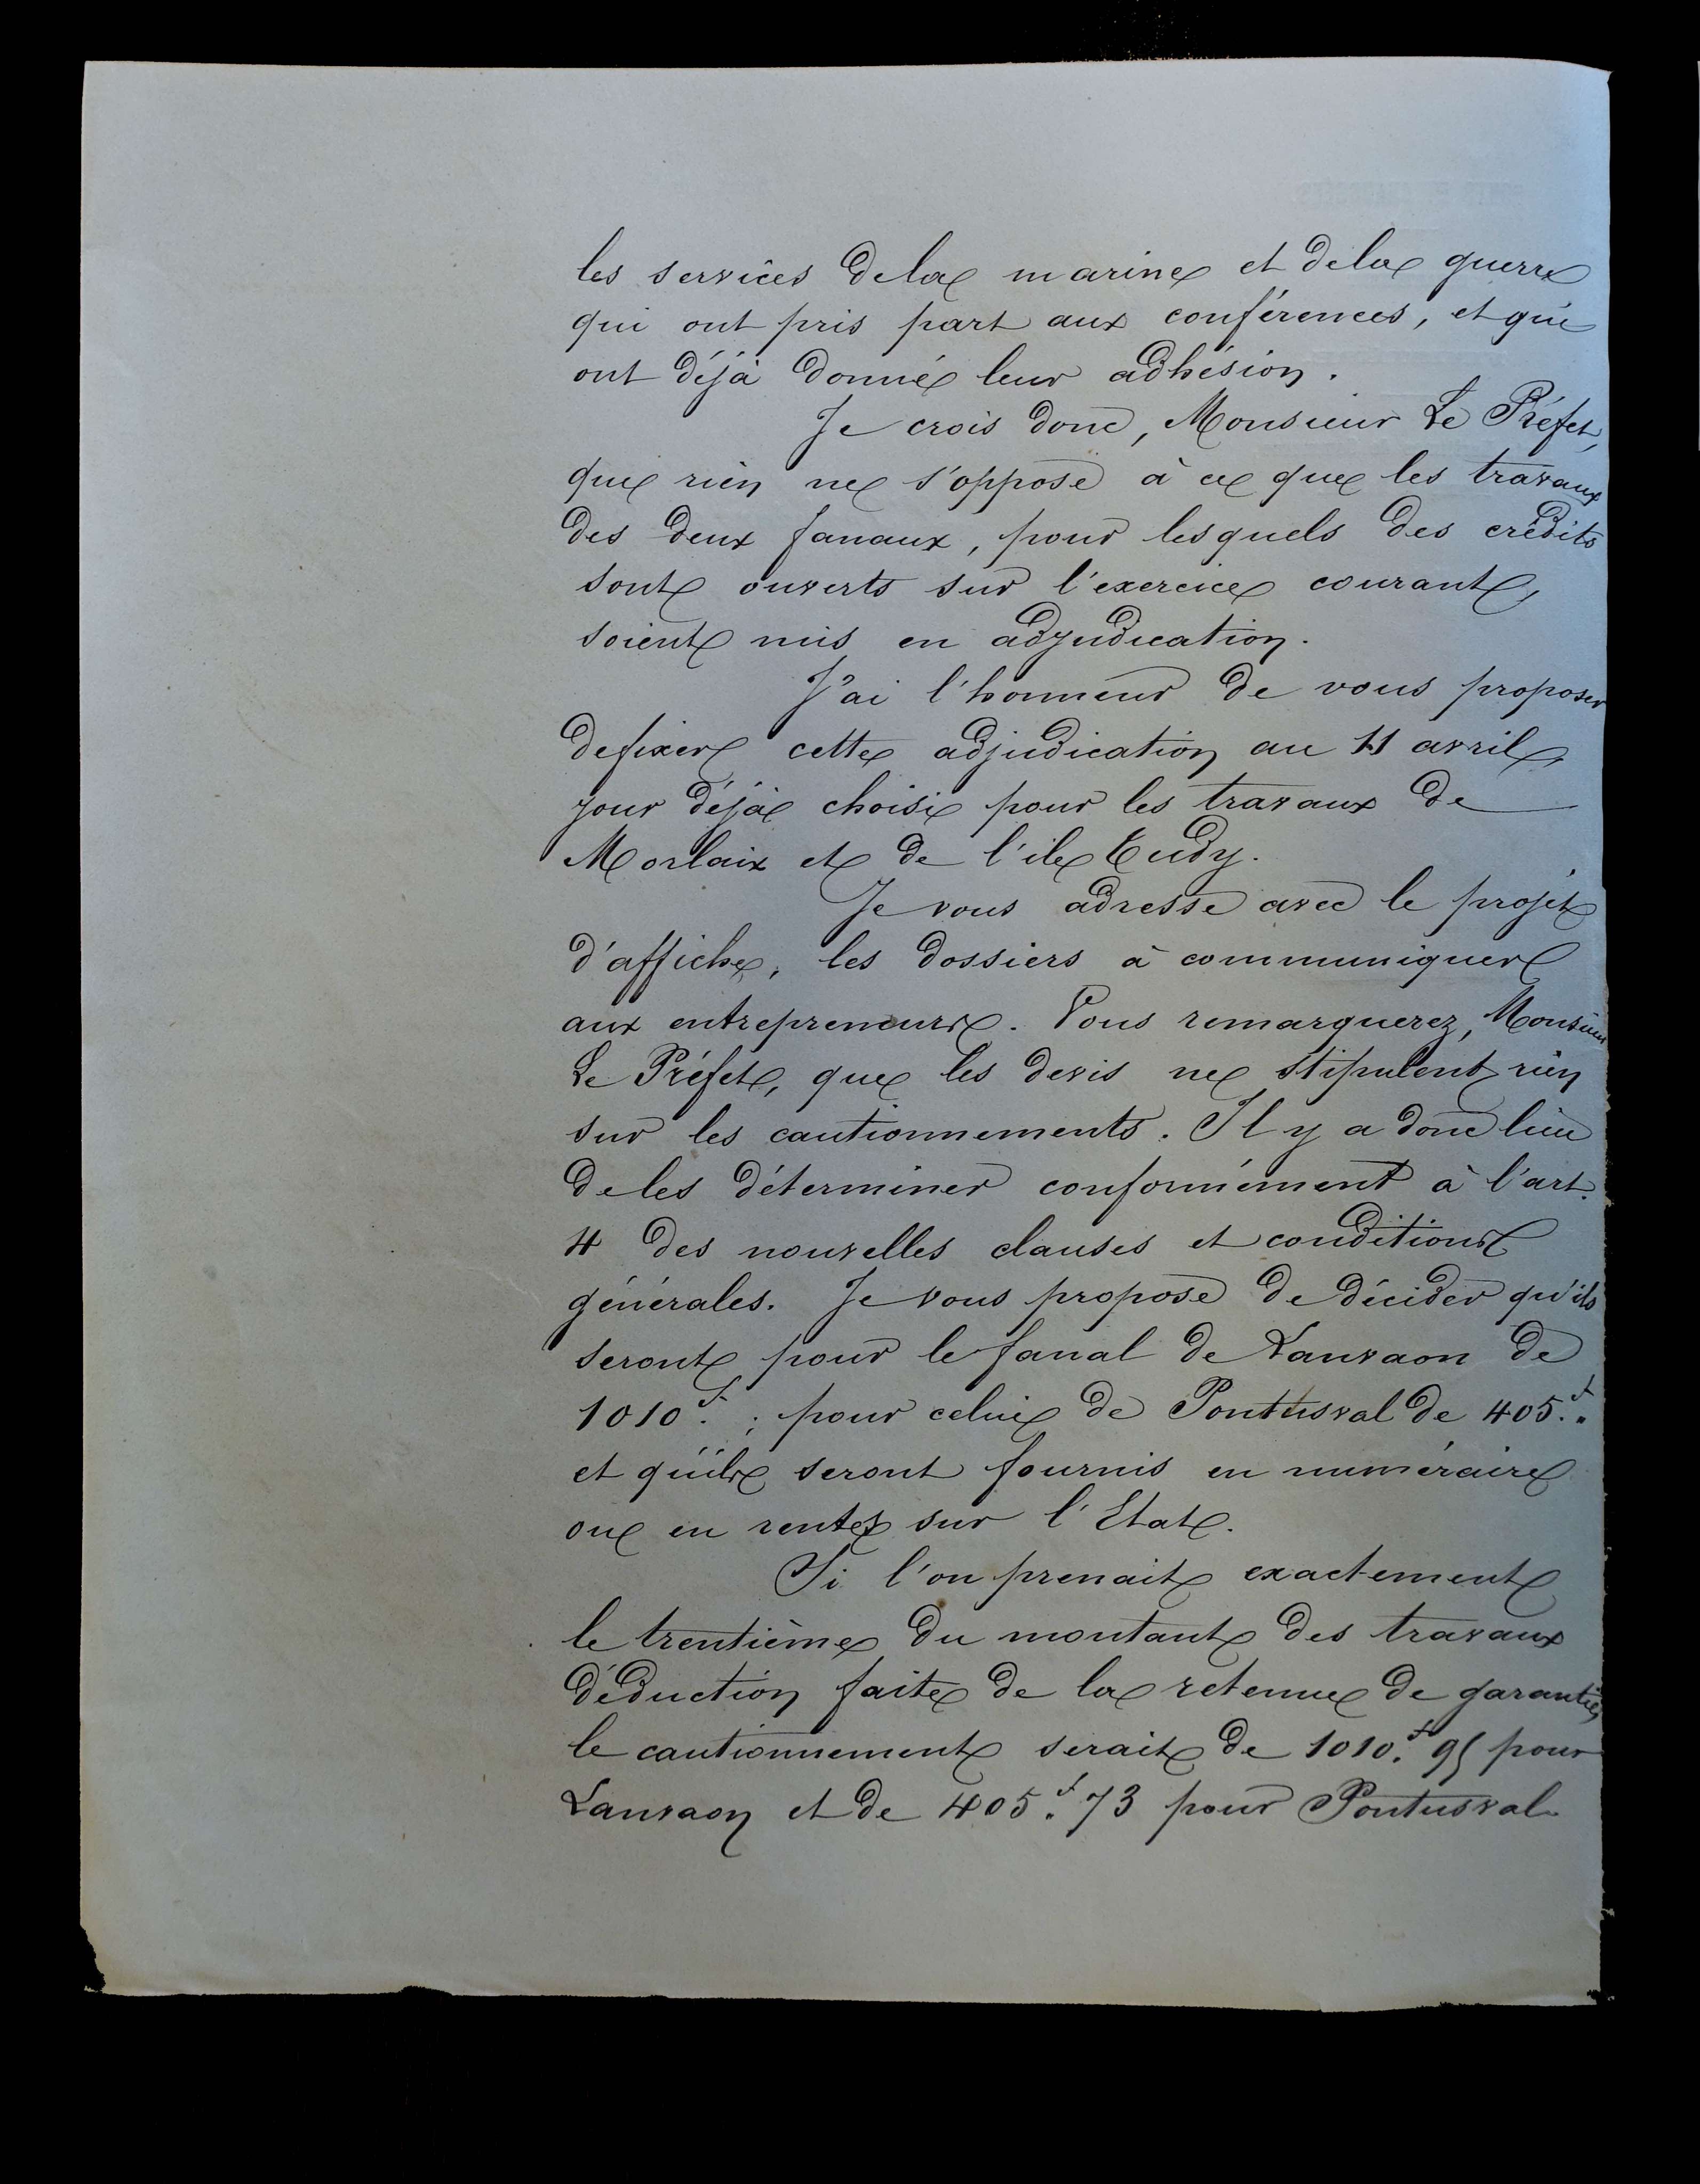 les services de la marine et de la guerre
qui ont pris part aux conférences, et qui
ont déjà donné leur adhésion.
Je crois donc, Monsieur Le Préfet,
que rien ne s'oppose à ce que les travaux
des deux fanaux, pour lesquels des crédits
sont ouverts sur l'exercice courant,
soient mis en adjudication.
J'ai l'honneur de vous proposer
de fixer cette adjudication au 11 avril,
jour déjà choisi pour les travaux de
Morlaix et de l'ile Tudy.
Je vous adresse avec le projet
d'affiche, les dossiers à communiquer
aux entrepreneurs. Vous remarquerez, Monsieur
Le Préfet, que les devis ne stipulent rien
sur les cautionnements. Il y a donc lieu
de les déterminer conformément à l'art.
4 des nouvelles clauses et conditions
générales. Je vous propose de décider qu'ils
seront pour le fanal de Lanvaon de
1010.f ; pour celui de Pontusval de 405.f "
et qu'ils seront fournis en numéraire
ou en rentes sur l'Etat.
Si l'on prenait exactement
le trentième du montant des travaux
déduction faite de la retenue de garantie,
le cautionnement serait de 1010.f 95 pour
Lanvaon et de 405.f 73 pour Pontusval.